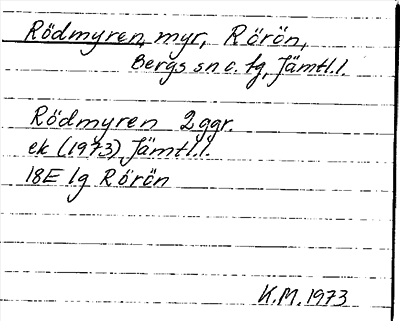 Rödmyren, myr, Rörön,
Bergs sn o. tg, Jämtl.l.
Rödmyren 2 ggr.
ek (1973) Jämtl.l.
18E 1g Rörön
K.M. 1973